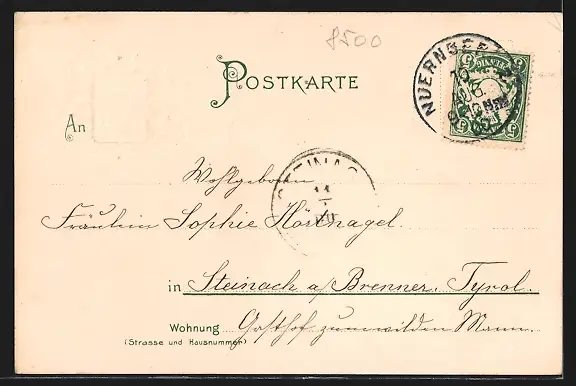 8500
POSTKARTE
NUERNBERG
An
STEINACH
Wohlgeboren
Fräulein Sophie Hörtnagel.
in Steinach a/Brenner. Tyrol.
Wohnung Gasthof zum wilden Mann.
(Strasse und Hausnummer)